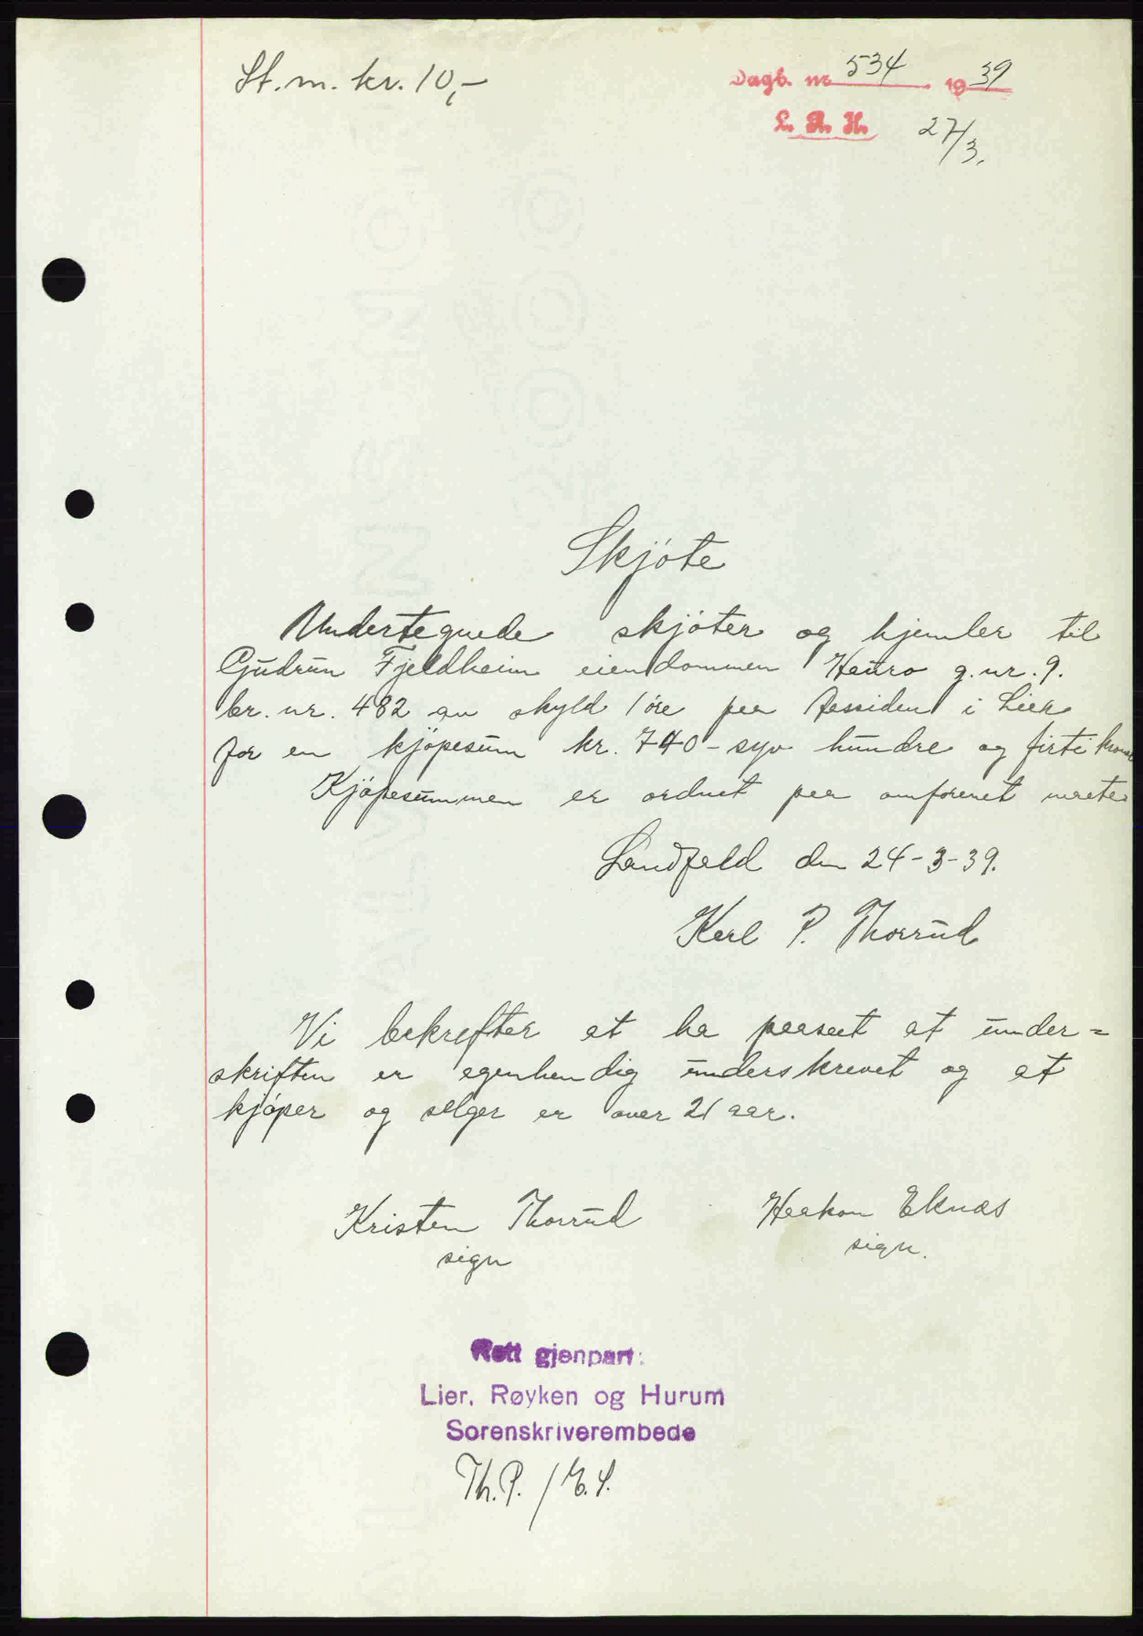 St. m. kr. 10,-
Dagb. nr. 534 1939
L. R. H. 27/3.
Skjöte
Undertegnede skjöter og hjemler til
Gudrun Fjeldheim eiendommen Hauro g. nr. 9.
br. nr. 482 av skyld 1 öre paa i Lier
for en kjöpesum kr. 740 - syv hundre og firti kroner
Kjöpesummen er ordnet paa omforenet maate
Landfald den 24-3-39.
Karl P. Thorrud
Vi bekrefter at ha paaseet at under=
skriften er egenhendig underskrevet og at
kjöper og selger er over 21 aar.
Kristen Thorrud Haakon Eknæs
sign sign.
Rett gjenpart:
Lier, Røyken og Hurum
Sorenskriverembede
Th. P. / E. S.